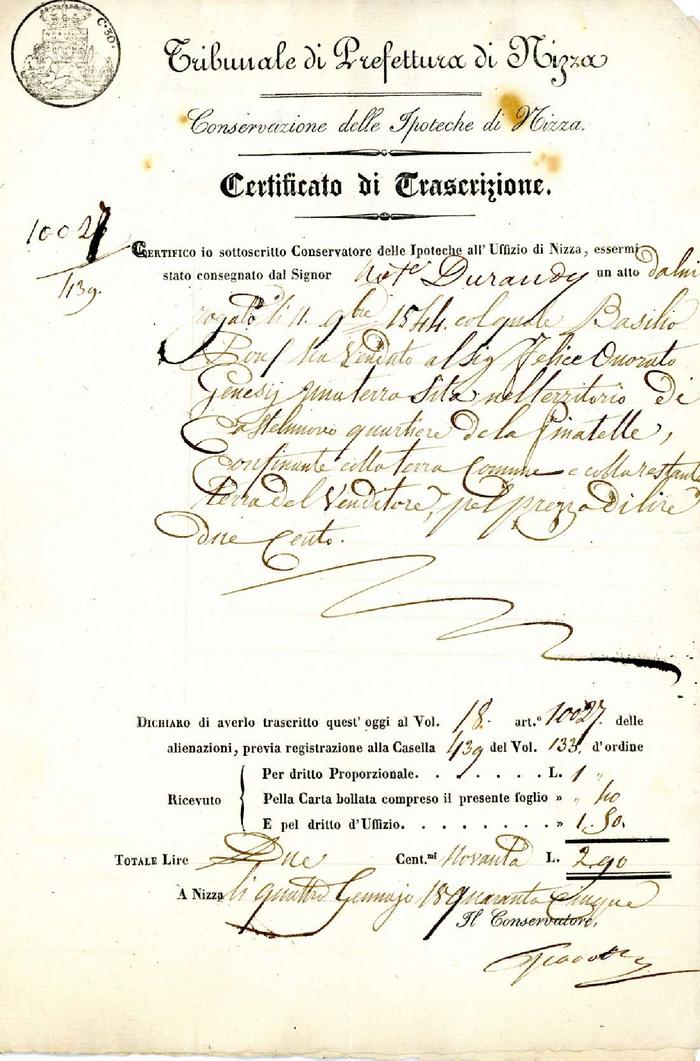 C. 50.
Tribunale di Prefettura di Nizza
Conservazione delle Ipoteche di Nizza.
Certificato di Trascrizione.
10027
439.
CERTIFICO io sottoscritto Conservatore delle Ipoteche all' Uffizio di Nizza, essermi
stato consegnato dal Signor Not.e Durandy un atto dalmi
rogato li 11. 9bre 1844. col quale Basilio
ha Venduto al Sig Felice Onorato
Genesy una terra Sita nel territorio di
Castelnuovo quartiere de la Pinatelle,
Confinante colla terra Comune e colla restante
terra del Venditore, pel prezzo di lire
due Cento.
DICHIARO di averlo trascritto quest' oggi al Vol. 18. art.° 10027. delle
alienazioni, previa registrazione alla Casella 439 del Vol. 133. d'ordine
Ricevuto
Per dritto Proporzionale. . . . . . . . L. 1 "
Pella Carta bollata compreso il presente foglio » " 40
E pel dritto d'Uffizio. . . . . . . . . » 1. 50.
TOTALE Lire Due Cent.mi Novanta L. 2.90
A Nizza li quattro Gennajo 18 quaranta Cinque
Il Conservatore,